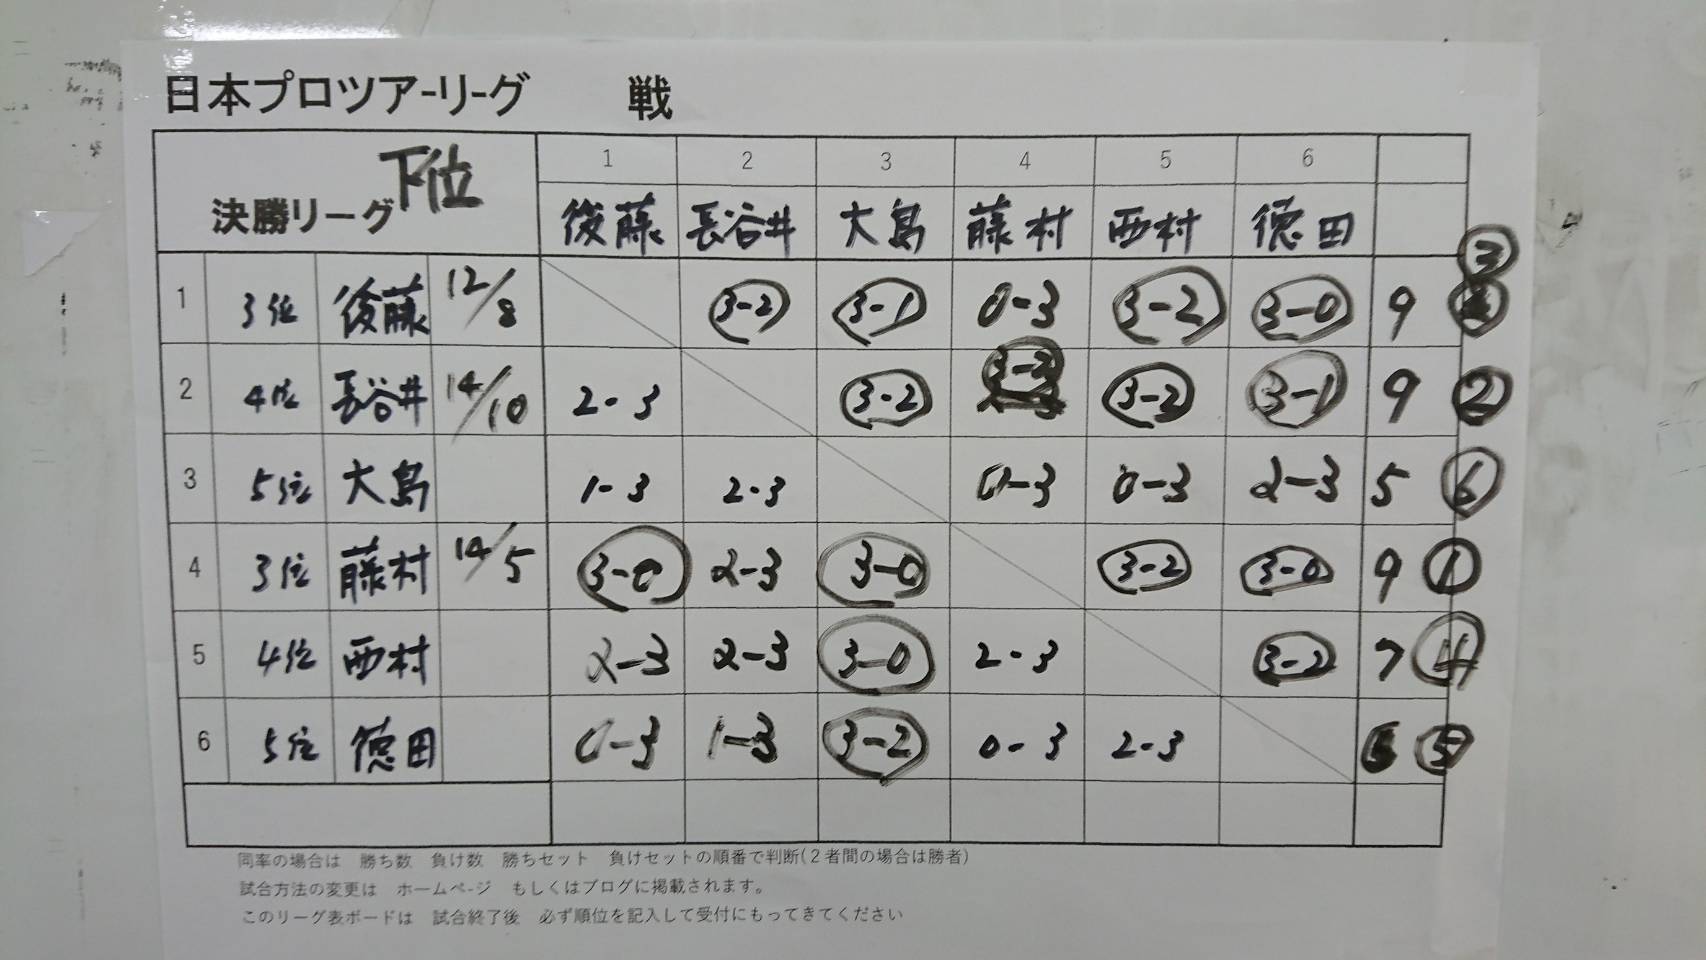 日本プロツアーリーグ 戦
決勝リーグ 下位
1 2 3 4 5 6
後藤 長谷井 大島 藤村 西村 徳田
1 3位 後藤 12/8 3-2 3-1 0-3 3-2 3-0 9 ③
2 4位 長谷井 14/10 2-3 3-2 3-2 3-2 3-1 9 ②
3 5位 大島 1-3 2-3 0-3 0-3 2-3 5 ⑥
4 3位 藤村 14/5 3-0 2-3 3-0 3-2 3-0 9 ①
5 4位 西村 2-3 2-3 3-0 2-3 3-2 7 ④
6 5位 徳田 0-3 1-3 3-2 0-3 2-3 ⑤
同率の場合は 勝ち数 負け数 勝ちセット 負けセットの順番で判断(2者間の場合は勝者)
試合方法の変更は ホームページ もしくはブログに掲載されます。
このリーグ表ボードは 試合終了後 必ず順位を記入して受付にもってきてください